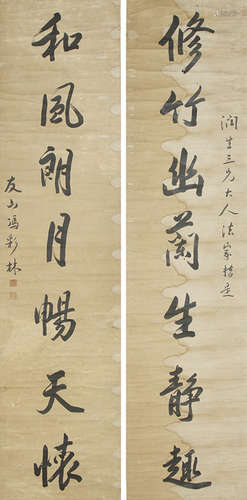 潤生三兄大人法家指正
修竹幽蘭生靜趣
和風朗月暢天懷
友山馮彩林